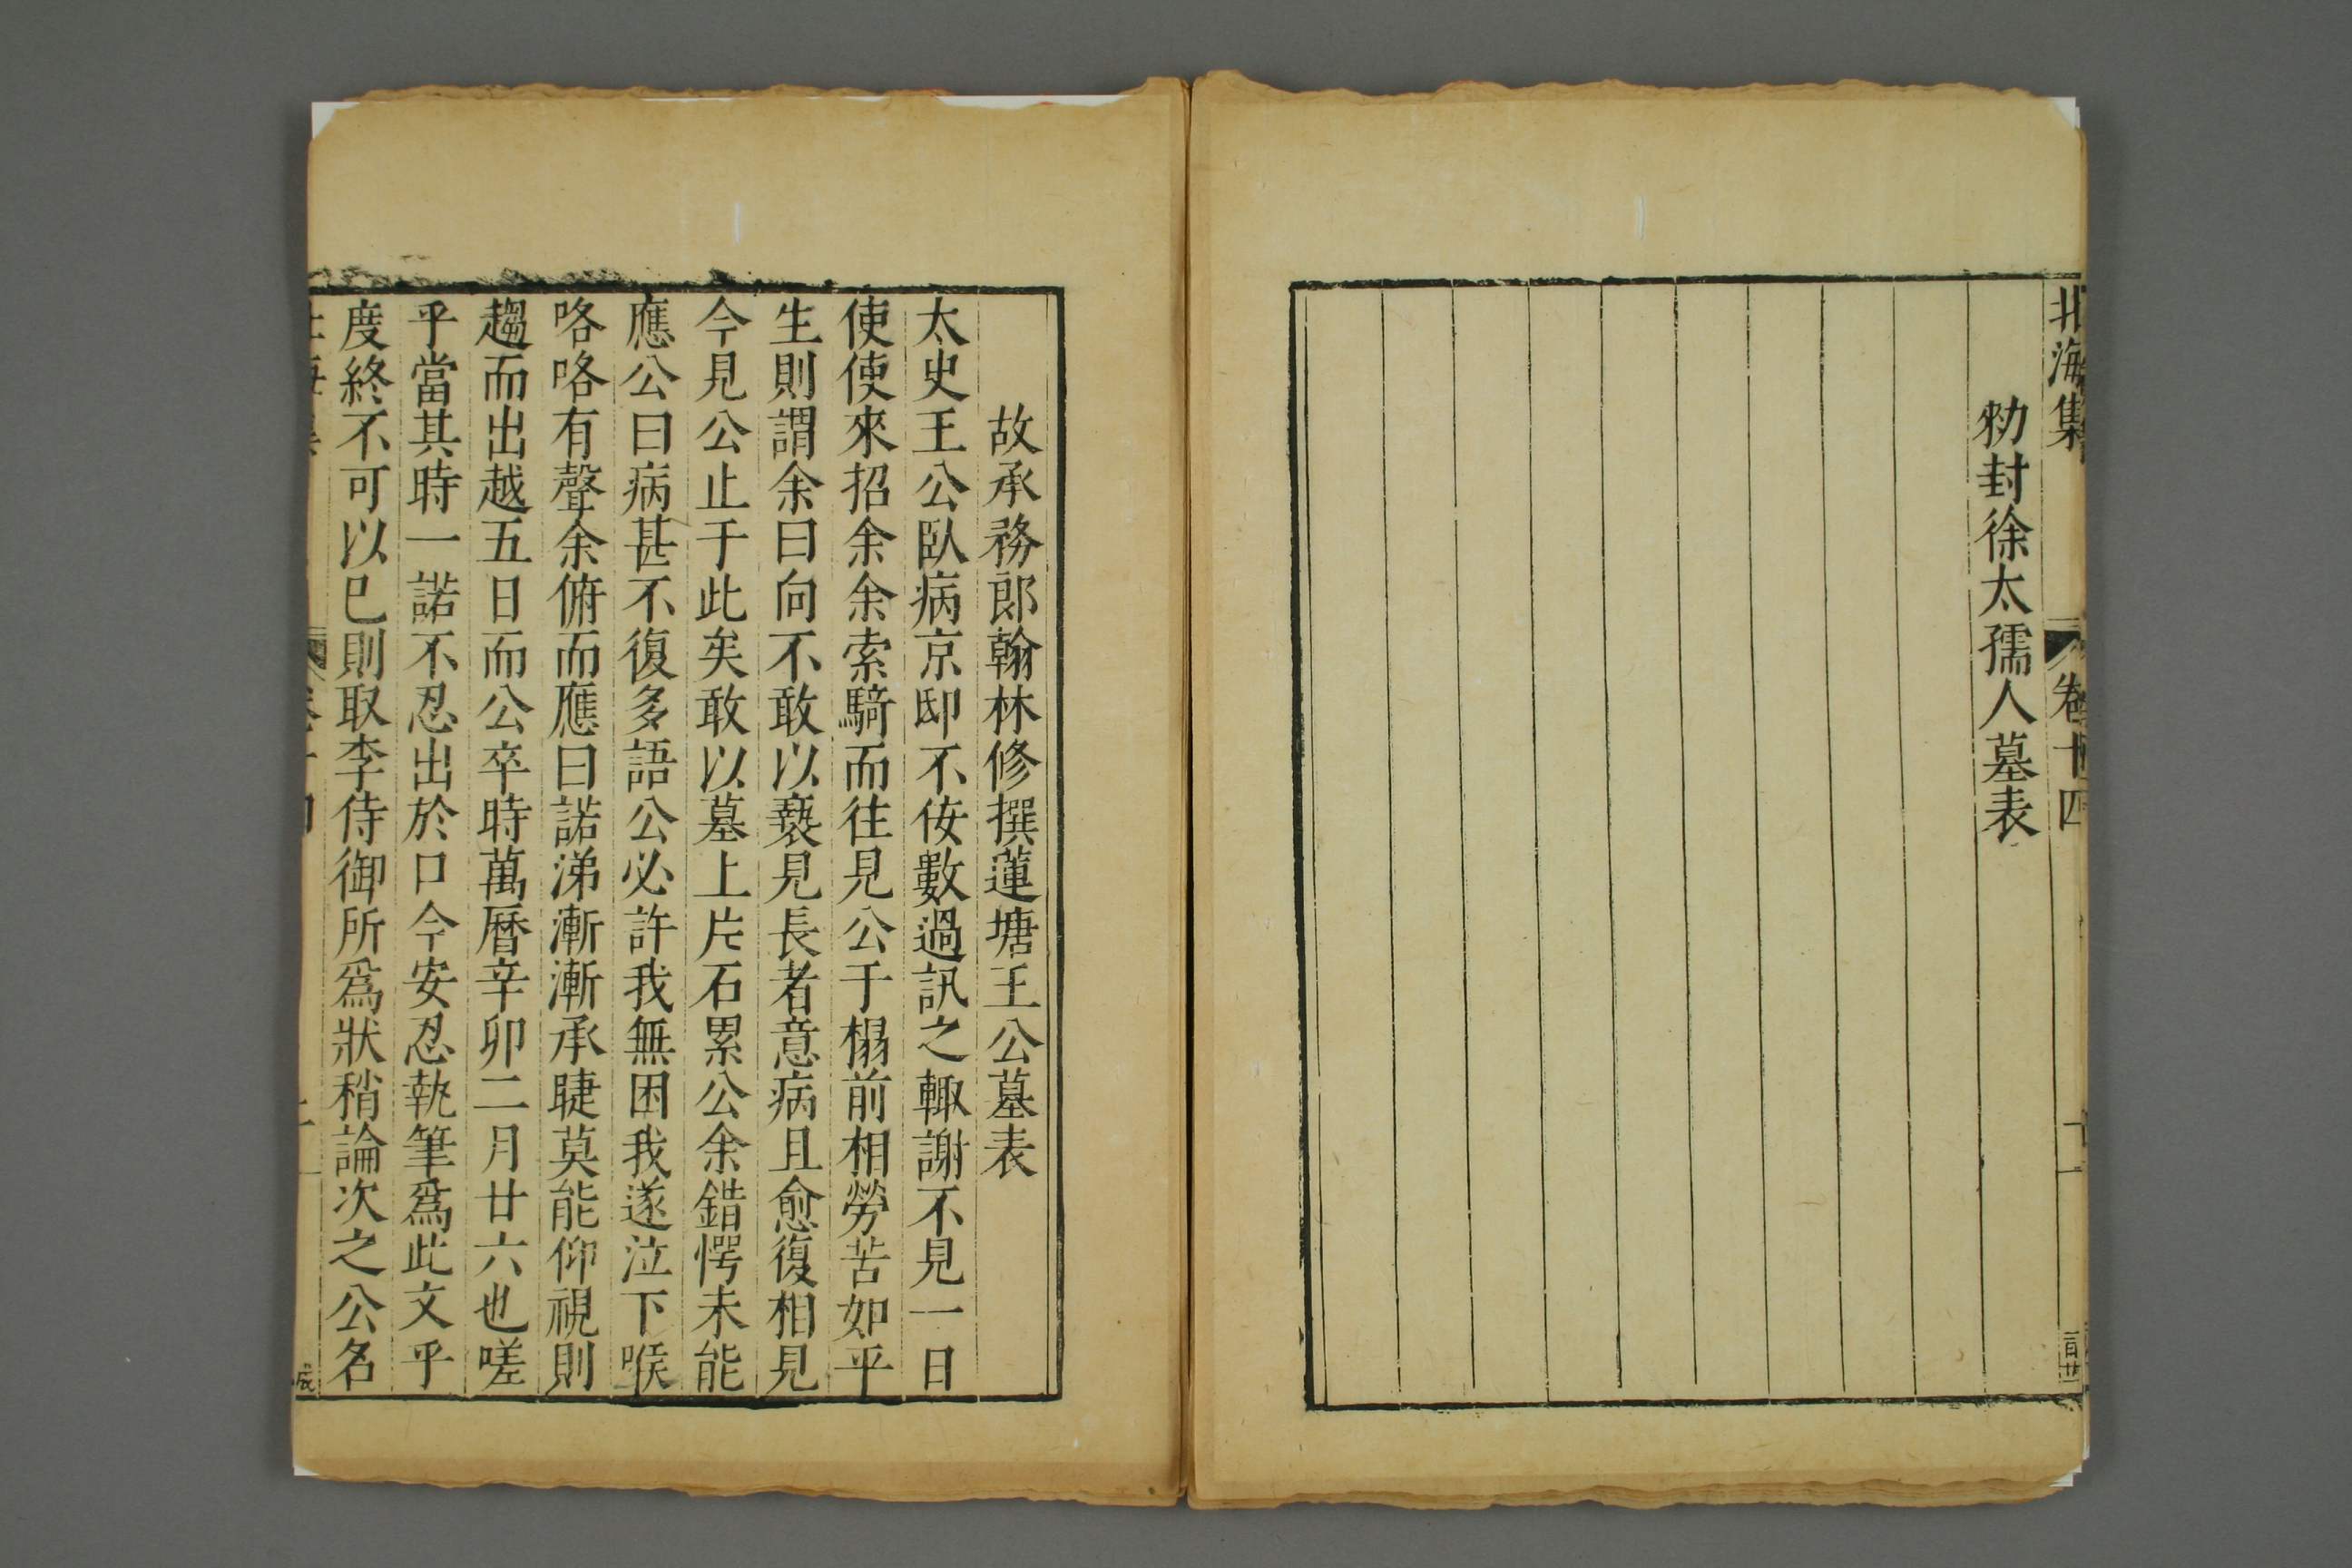 北海集 卷十四 十一 百廿
勑封徐太孺人墓表
故承務郎翰林修撰蓮塘王公墓表
太史王公臥病京邸不佞數過訊之輙謝不見一日
使使來招余余索騎而往見公于榻前相勞苦如平
生則謂余曰向不敢以褻見長者意病且愈復相見
今見公止于此矣敢以墓上片石累公余錯愕未能
應公曰病甚不復多語公必許我無困我遂泣下喉
咯咯有聲余俯而應曰諾涕漸漸承睫莫能仰視則
趨而出越五日而公卒時萬曆辛卯二月廿六也嗟
乎當其時一諾不忍出於口今安忍執筆爲此文乎
度終不可以已則取李侍御所爲狀稍論次之公名